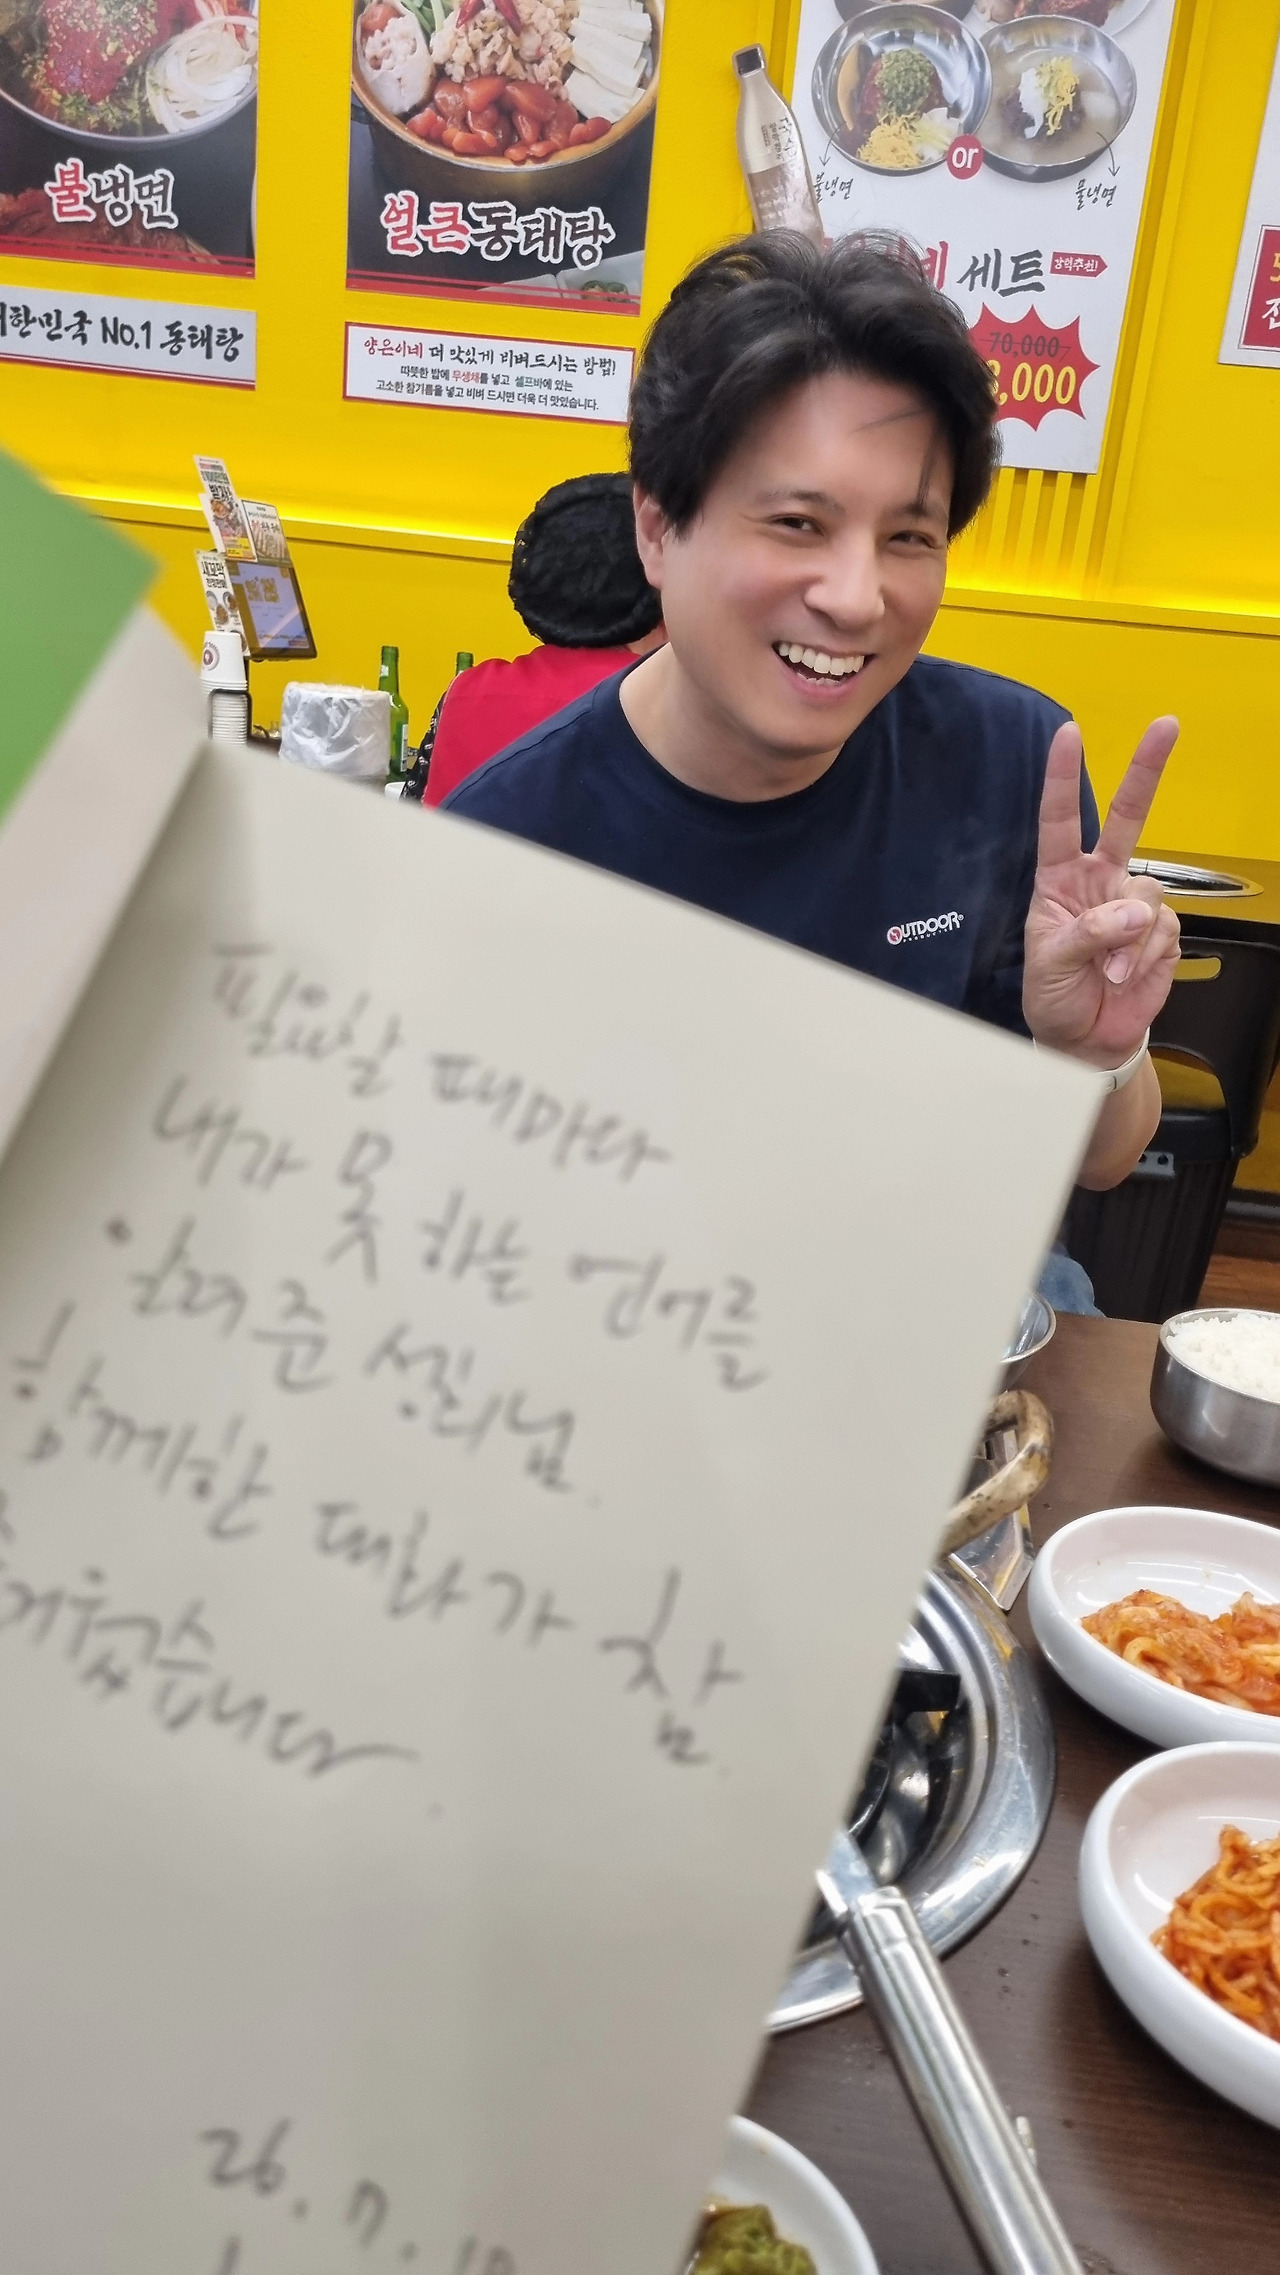 불냉면
얼큰동태탕
대한민국 NO.1 동태탕
양은이네 더 맛있게 비벼드시는 방법!
따뜻한 밥에 무생채를 넣고 셀프바에 있는
고소한 참기름을 넣고 비벼 드시면 더욱 더 맛있습니다.
or
불냉면
물냉면
세트
강력추천!
70,000
,000
OUTDOOR
PRODUCTS
필요할 때마다
내가 못 하는 언어를
알려준
함께한 대화가 참
즐거웠습니다.
26. 7. 10